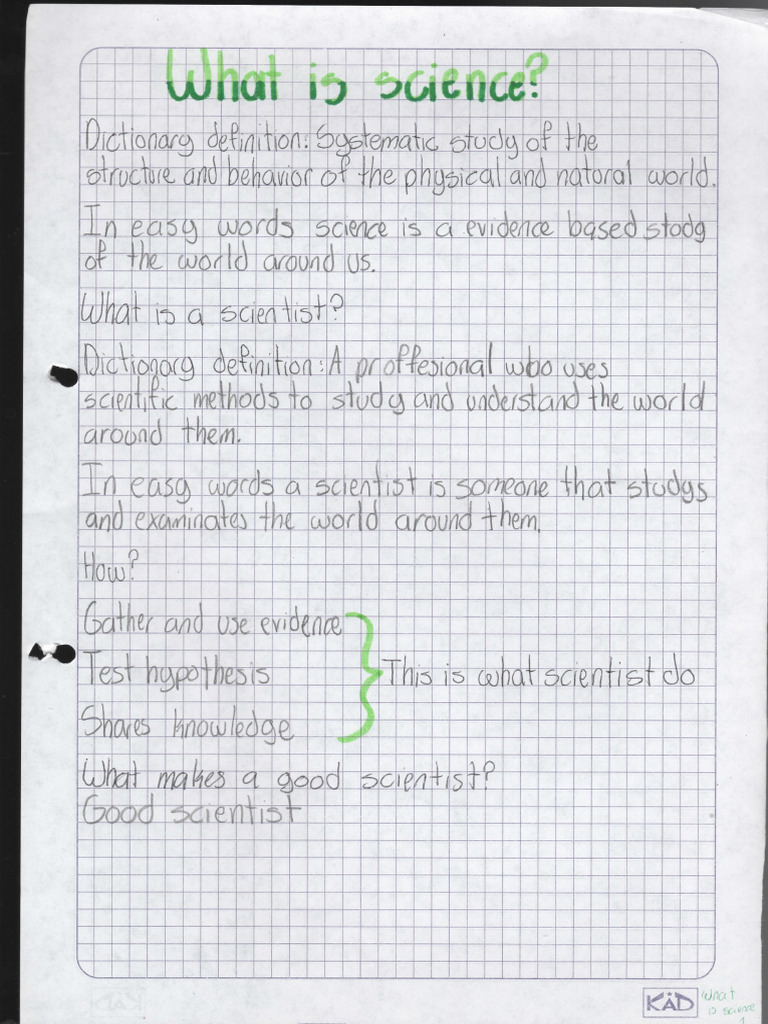 What is science?
Dictionary definition: Systematic study of the
structure and behavior of the physical and natural world.
In easy words science is a evidence based study
of the world around us.
What is a scientist?
Dictionary definition: A proffesional who uses
scientific methods to study and understand the world
around them.
In easy words a scientist is someone that studys
and examinates the world around them.
How?
Gather and use evidence
Test hypothesis
This is what scientist do
Shares knowledge
What makes a good scientist?
Good scientist
KÄD
What
is science
1